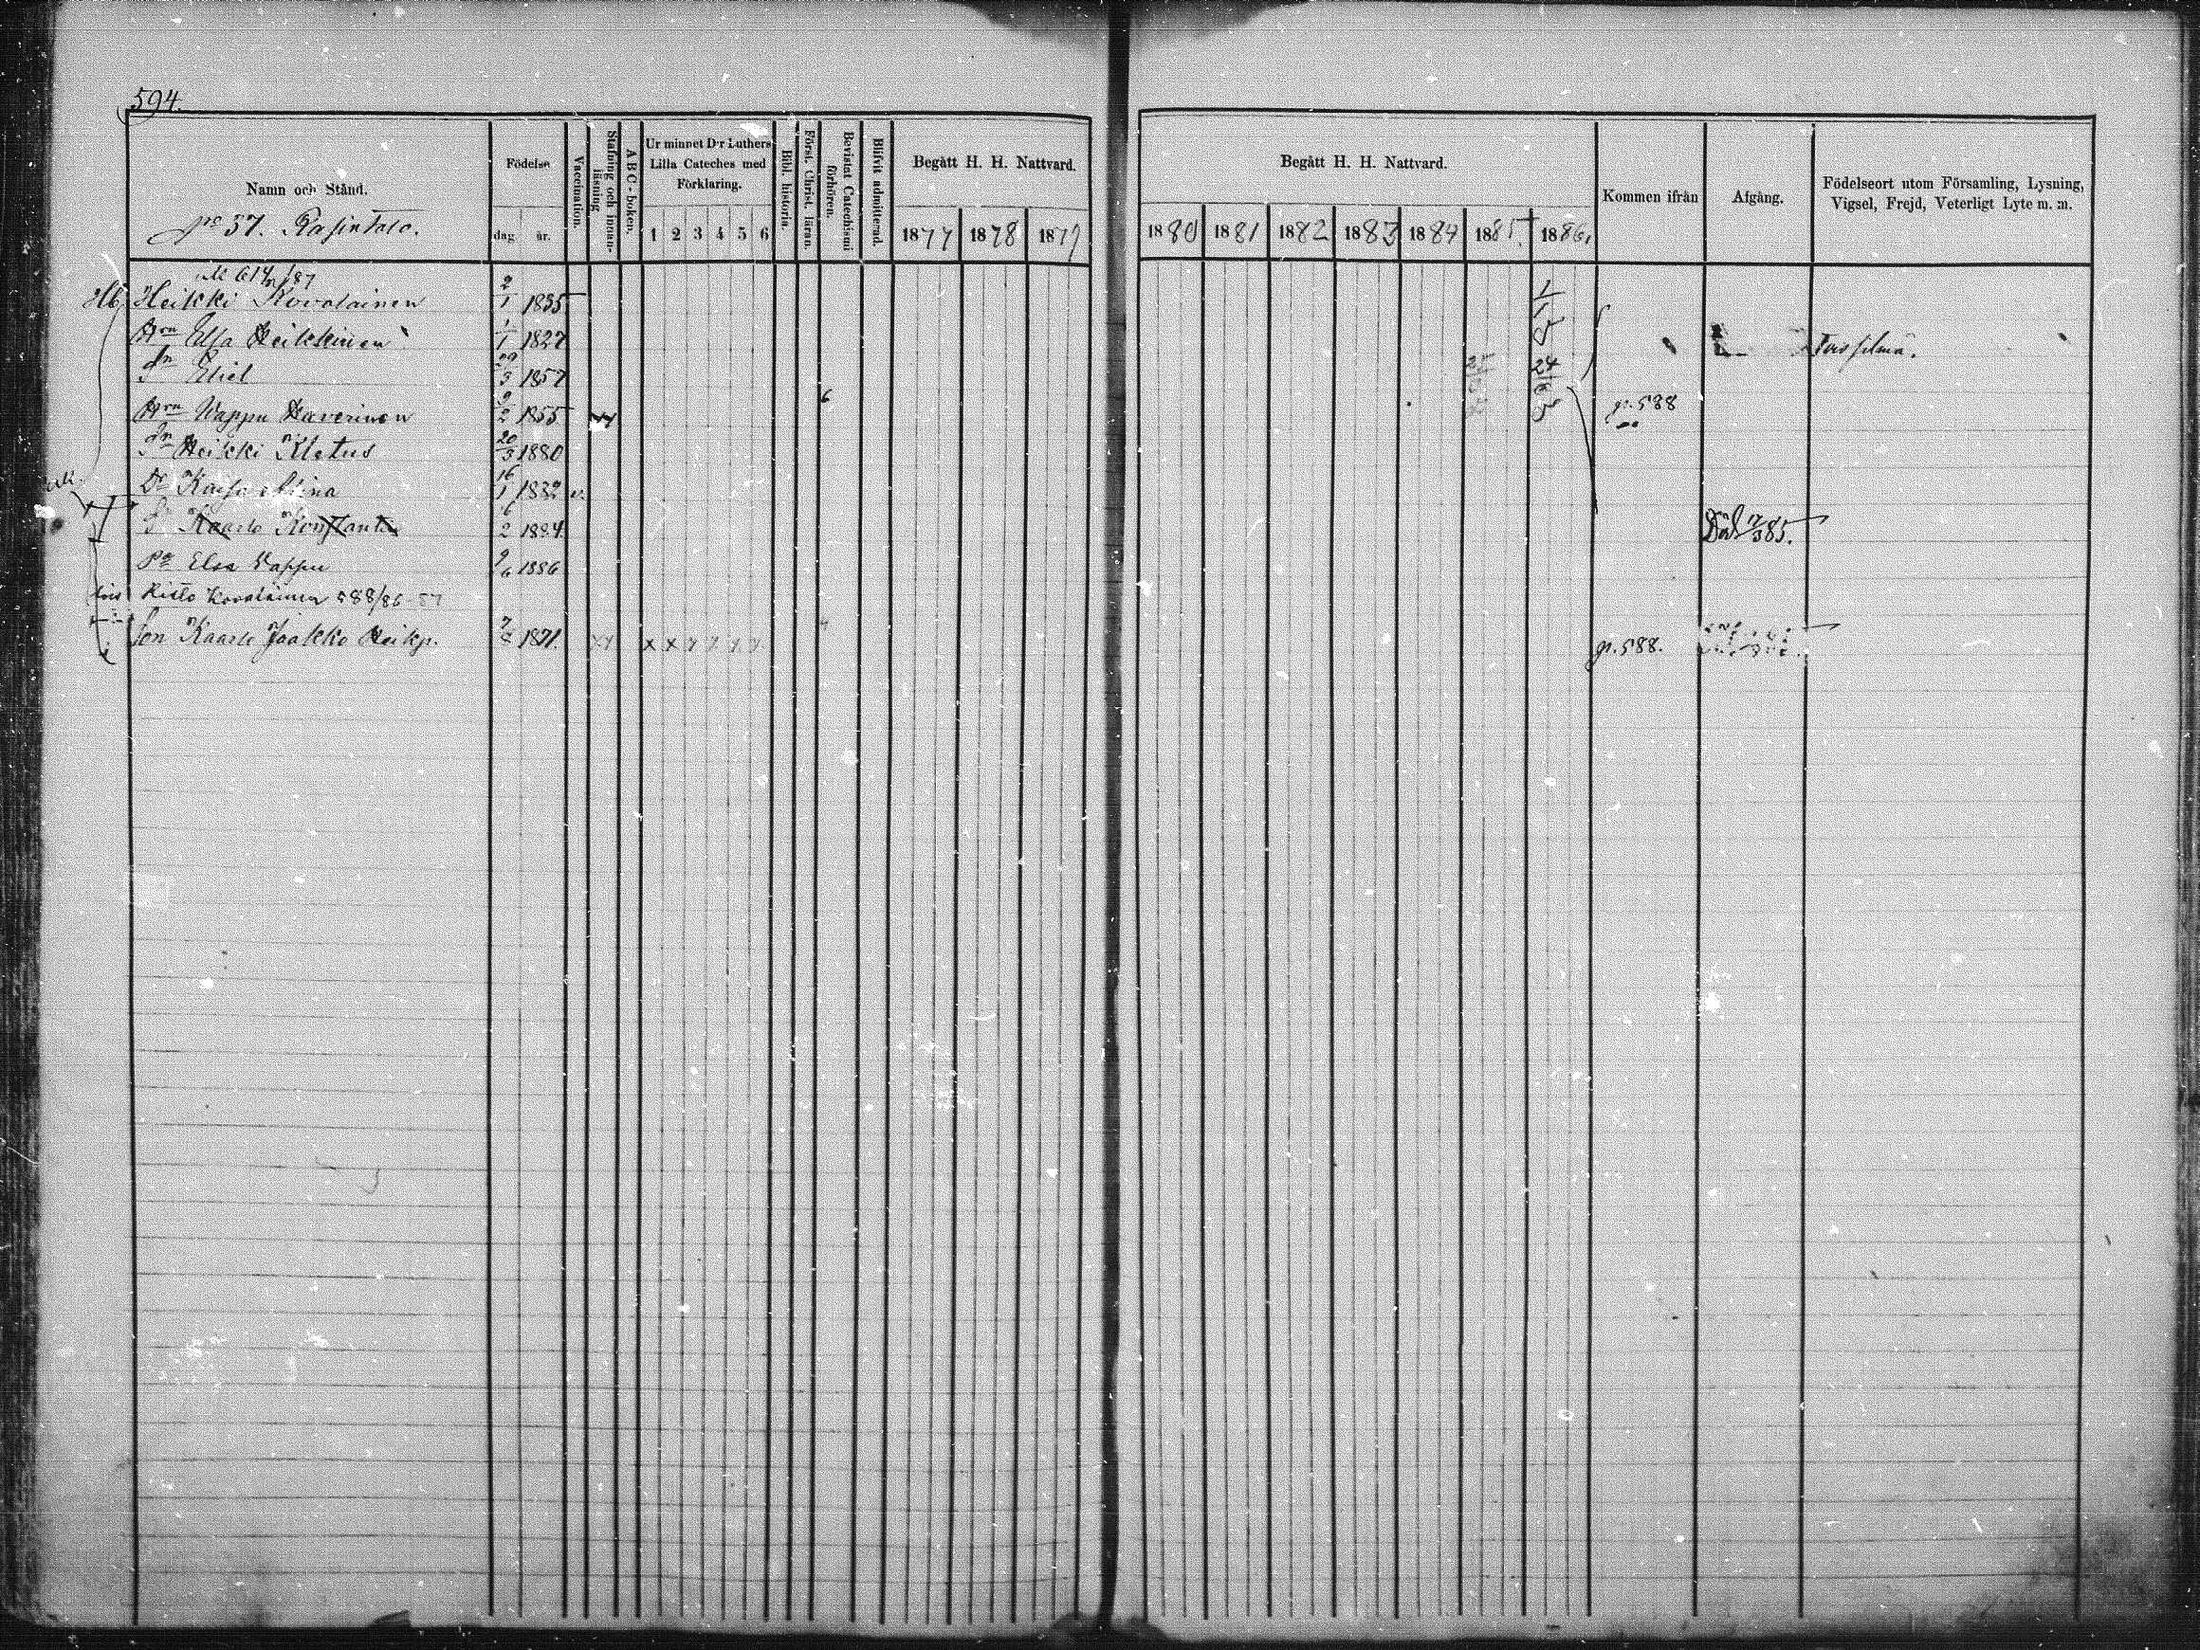 594.
Namn och Stånd.
Födelse
dag.
år.
Vaccination.
Stafning och innan-läsning
ABC-boken.
Ur minnet D:r Luthers
Lilla Cateches med
Förklaring.
1 2 3 4 5 6
Bibl. historia.
Först. Christ. läran.
Bevistat Catechismi förhören.
Blifvit admitterad.
Begått H. H. Nattvard.
1877 1878 1879
Begått H. H. Nattvard.
1880 1881 1882 1883 1884 1885 1886
Kommen ifrån
Afgång.
Födelseort utom Församling, Lysning,
Vigsel, Frejd, Veterligt Lyte m. m.
No 37.
614 /87
Heikki Kovalainen 2/1 1835
Hru Elsa Heikkinen 1/1 1827
Sn Eliel 29/3 1857
Hru Wappu Haverinen 9/2 1855 6 p. 588
Sn Heikki Kletus 20/3 1880
Dr Kaisa Stina 16/1 1882 v.
Sn Kaarlo Konstantin 6/2 1884. Död /3 85.
Elsa Wappu 9/6 1886
Risto Kovalainen 588/86-87
Son Kaarlo Jaakko Heikp. 1871. x x p. 588.